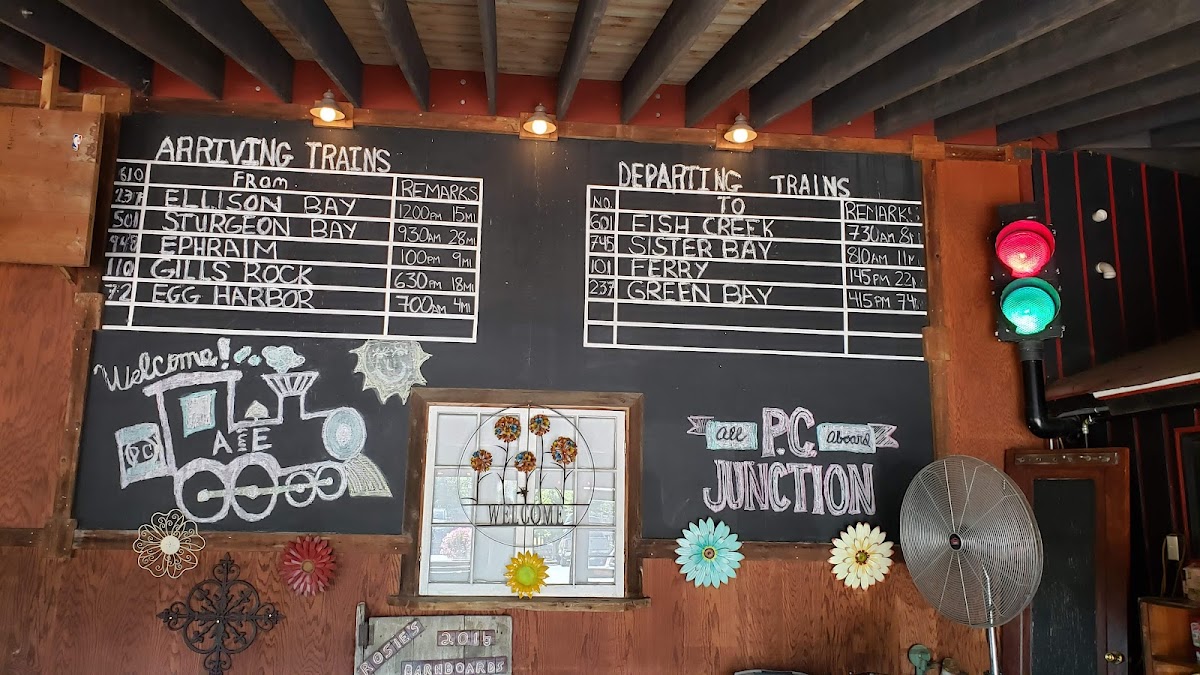 ARRIVING TRAINS
610 FROM REMARKS
237 ELLISON BAY 1200PM 15MI
501 STURGEON BAY 930AM 28MI
948 EPHRAIM 100PM 9MI
110 GILLS ROCK 630PM 18MI
72 EGG HARBOR 700AM 4MI
DEPARTING TRAINS
NO. TO REMARKS
601 FISH CREEK 730AM 8MI
745 SISTER BAY 810AM 11MI
101 FERRY 145PM 22
237 GREEN BAY 415PM 74
Welcome!
PC
A & E
WELCOME
All P.C. Aboard
JUNCTION
ROSIE'S 2015
BARNBOARDS